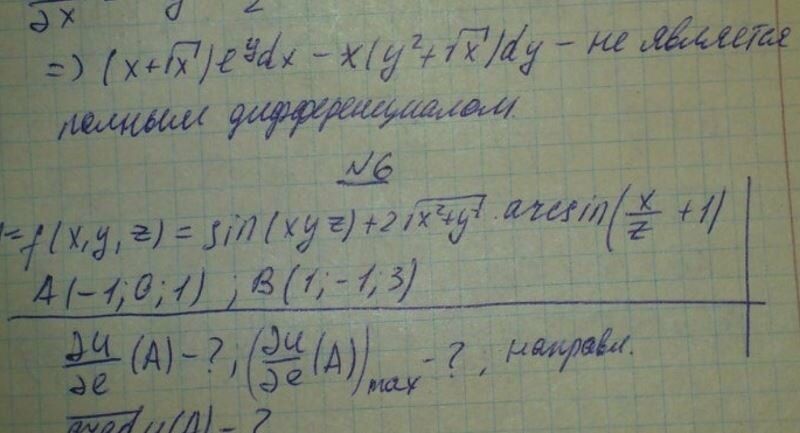 ∂x
2
=> (x+√x)e^y dx − x(y²+√x)dy − не является
полным дифференциалом.
N6
u=f(x,y,z) = sin(xyz)+2√(x²+y²)·arcsin(x/z +1)
A(−1;0;1) ; B(1;−1;3)
∂u/∂e (A) − ? ; (∂u/∂e (A))max − ? , направл.
grad u(A) − ?